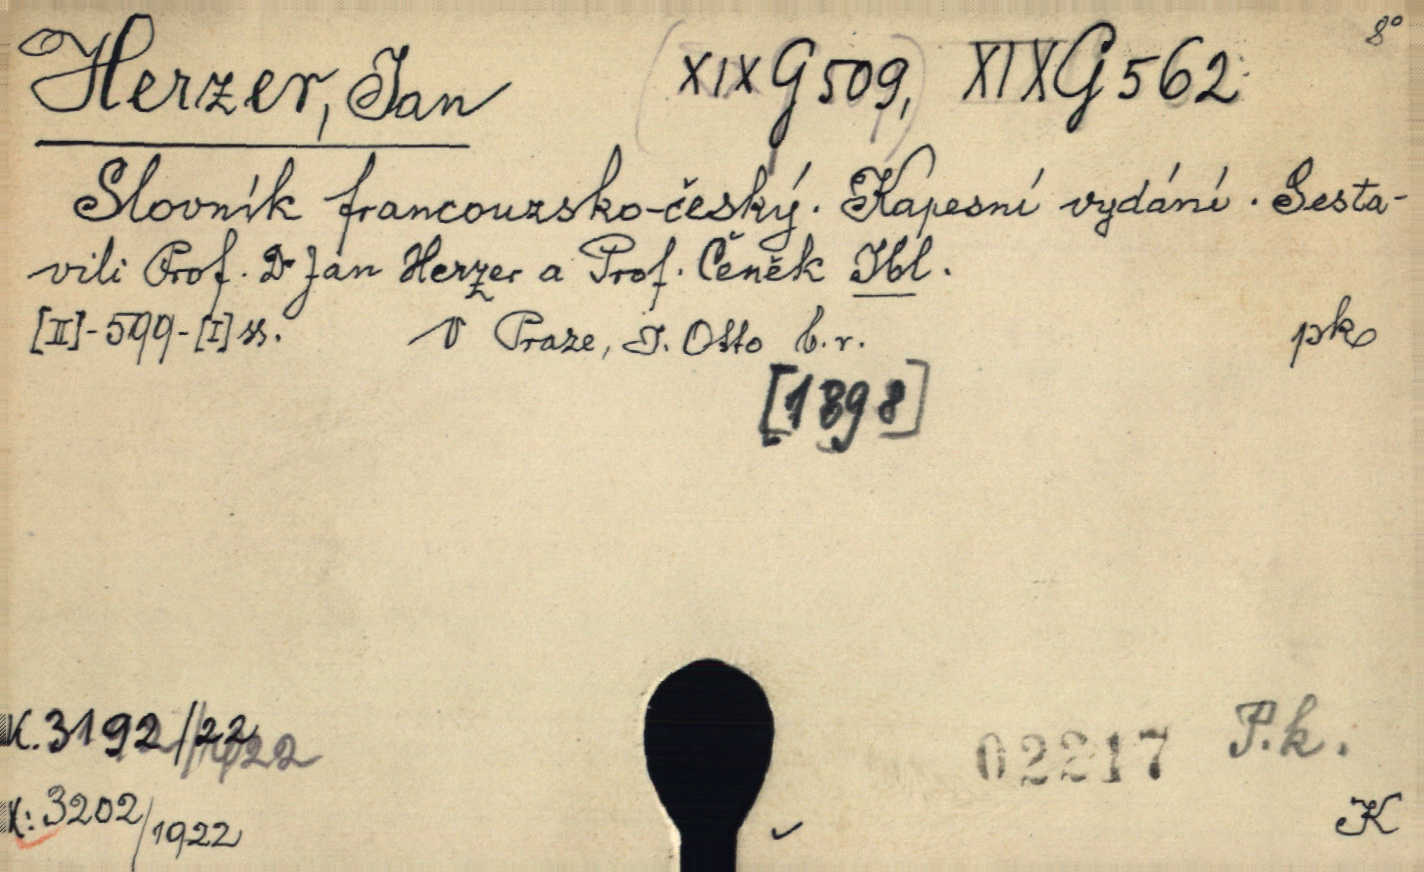 8°
Herzer, Jan (XIX G 509,) XIX G 562
Slovník francouzsko-český. Kapesní vydání. Sesta-
vili Prof. Dr Jan Herzer a Prof. Čeněk Ibl.
[II]-599-[I] ss. V Praze, J. Otto b.r. pk
[1898]
K. 3192/22
02217 P.k.
K: 3202/1922 K